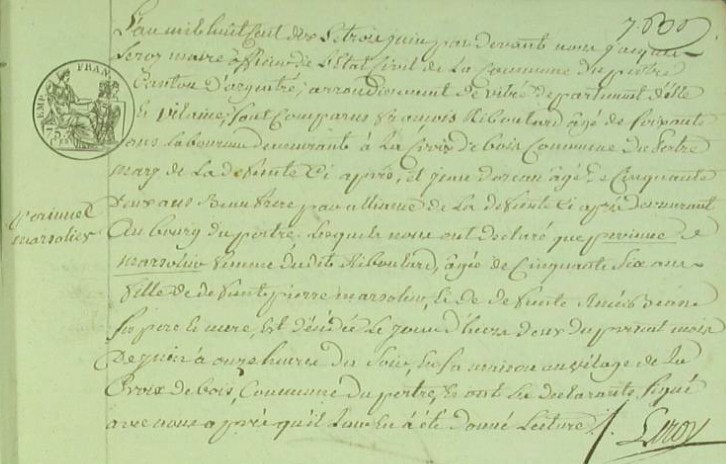 7.630
L'an mil huit cent dix Le trois juin par devant nous jacques
Leroy maire officier de L'Etat Civil de La Commune du pertre
Canton D'argentré, arrondissement De vitré departement d'ille
Et vilaine, sont Comparus françois Riboulard âgé de soixante
ans laboureur demeurante à La Croix de bois Commune du Pertre
mary de La defunte Ci après, et jean âgé de Cinquante
deux ans Beau frere par alliance de La defunte Ci après demeurant
Au bourg du pertre. Lesquels nous ont declaré que perinne
marsolier femme dudit Riboulard, âgée de Cinquante Six ans
fille de defunt pierre marsolier, et de defunte
Ses pere et mere, Est décédée Le jour d'hiers deux du present mois
De juin à onze heures du Soir, En sa maison au vilage de La
Croix de bois, Commune du pertre, Et ont Les declarants signé
avec nous après qu'il Leur En a été donné Lecture. /.
Leroy
perinne
marsolier
EMP. FRAN.